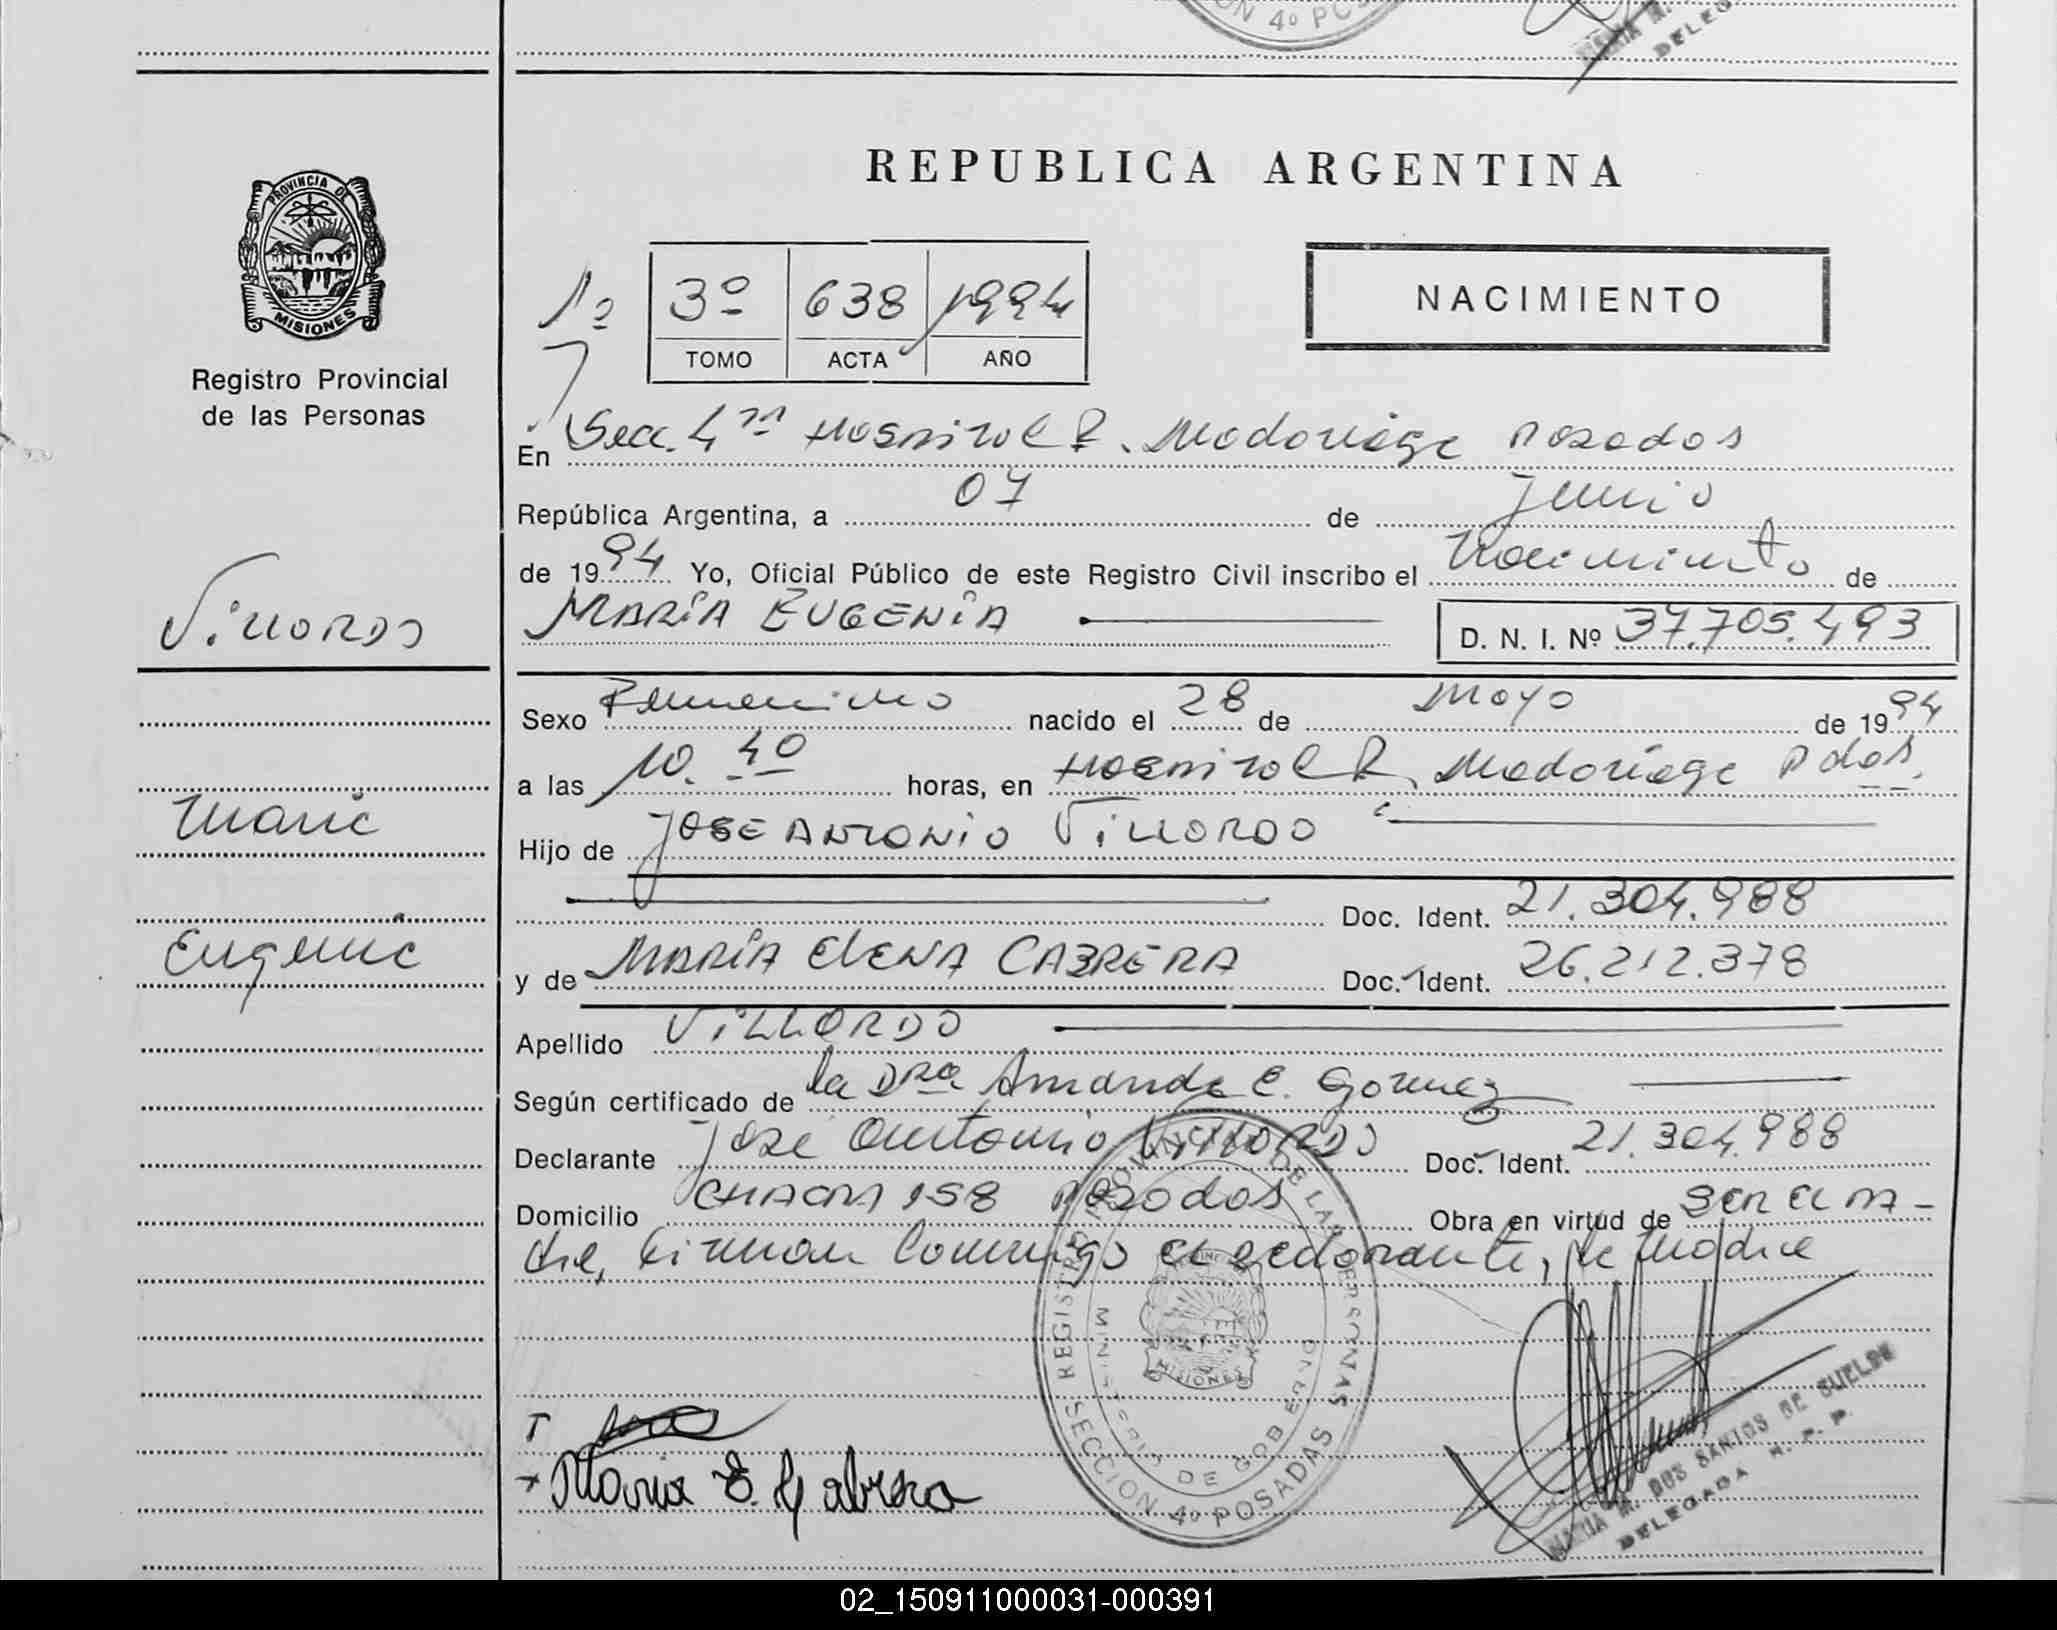 ON 4º PO
MARIA M.
DELEG
PROVINCIA DE
MISIONES
Registro Provincial
de las Personas
Villordo
Maria
Eugenia
REPUBLICA ARGENTINA
1º 3º 638 1994
TOMO ACTA AÑO
NACIMIENTO
En Secc. 4ta Hospital R. Madariaga Posadas
República Argentina, a 07 de Junio
de 1994 Yo, Oficial Público de este Registro Civil inscribo el Nacimiento de
MARÍA EUGENIA D. N. I. Nº 37.705.493
Sexo Femenino nacido el 28 de Mayo de 1994
a las 10.40 horas, en Hospital R. Madariaga Pdas.
Hijo de JOSE ANTONIO VILLORDO
Doc. Ident. 21.304.988
y de MARÍA ELENA CABRERA Doc. Ident. 26.212.378
Apellido VILLORDO
Según certificado de la Dra Amanda E. Gomez
Declarante José Antonio VILLORDO Doc. Ident. 21.304.988
Domicilio CHACRA 158 Posadas Obra en virtud de ser el pa-
dre, firman conmigo el declarante, la madre
REGISTRO PROVINCIAL DE LAS PERSONAS
MINISTERIO DE GOBIERNO
MISIONES
SECCION 4º POSADAS
T
+ Maria E. Cabrera
MARIA M. DOS SANTOS DE SUELDE
DELEGADA R. P. P.
02_150911000031-000391